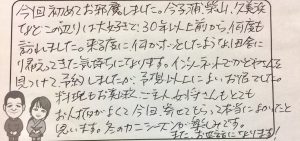 今回初めてお邪魔しました。今子浦、柴山、久美浜
などこの辺りは大好きで、30年以上前から、何度も
訪れました。来る度に何かホッとしたような田舎に
帰ってきた気持ちになります。インターネットでかどやさんを
見つけて、予約しましたが、予想以上によいお宿でした。
料理もお風呂 ご主人、女将さんもとても
お人柄がよくて今回、寄せてもらって本当によかったと
思います。冬のカニシーズンが楽しみです。
また、お世話になります!